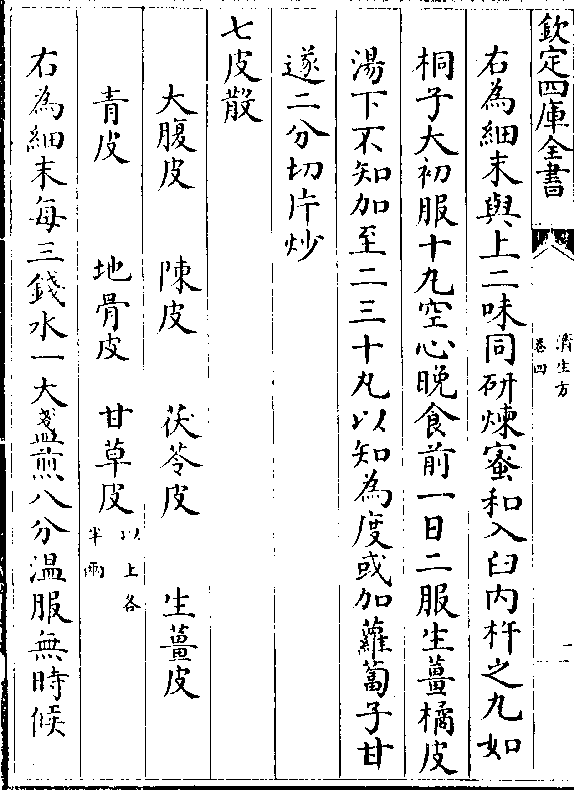 欽定四庫全書
濟生方
卷四
二
右為細末與上二味同研煉蜜和入臼內杵之丸如
桐子大初服十丸空心晚食前一日二服生薑橘皮
湯下不知加至二三十丸以知為度或加蘿蔔子甘
遂二分切片炒
七皮散
大腹皮 陳皮 茯苓皮 生薑皮
青皮 地骨皮 甘草皮以上各半兩
右為細末每三錢水一大盞煎八分溫服無時候